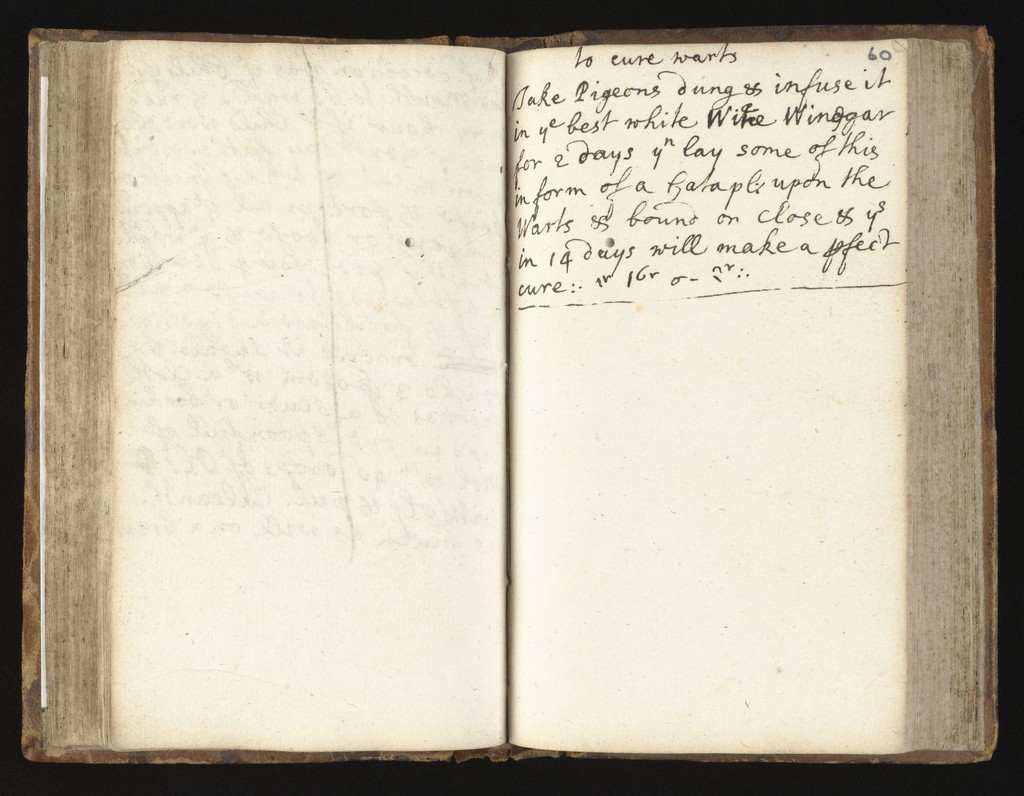 60
to cure warts
Take Pigeons dung & infuse it
in ye best white Wine Winegar
for 2 days yn lay some of this
in form of a Catapl: upon the
Warts & bound on close & ys
in 14 days will make a pfect
cure:.